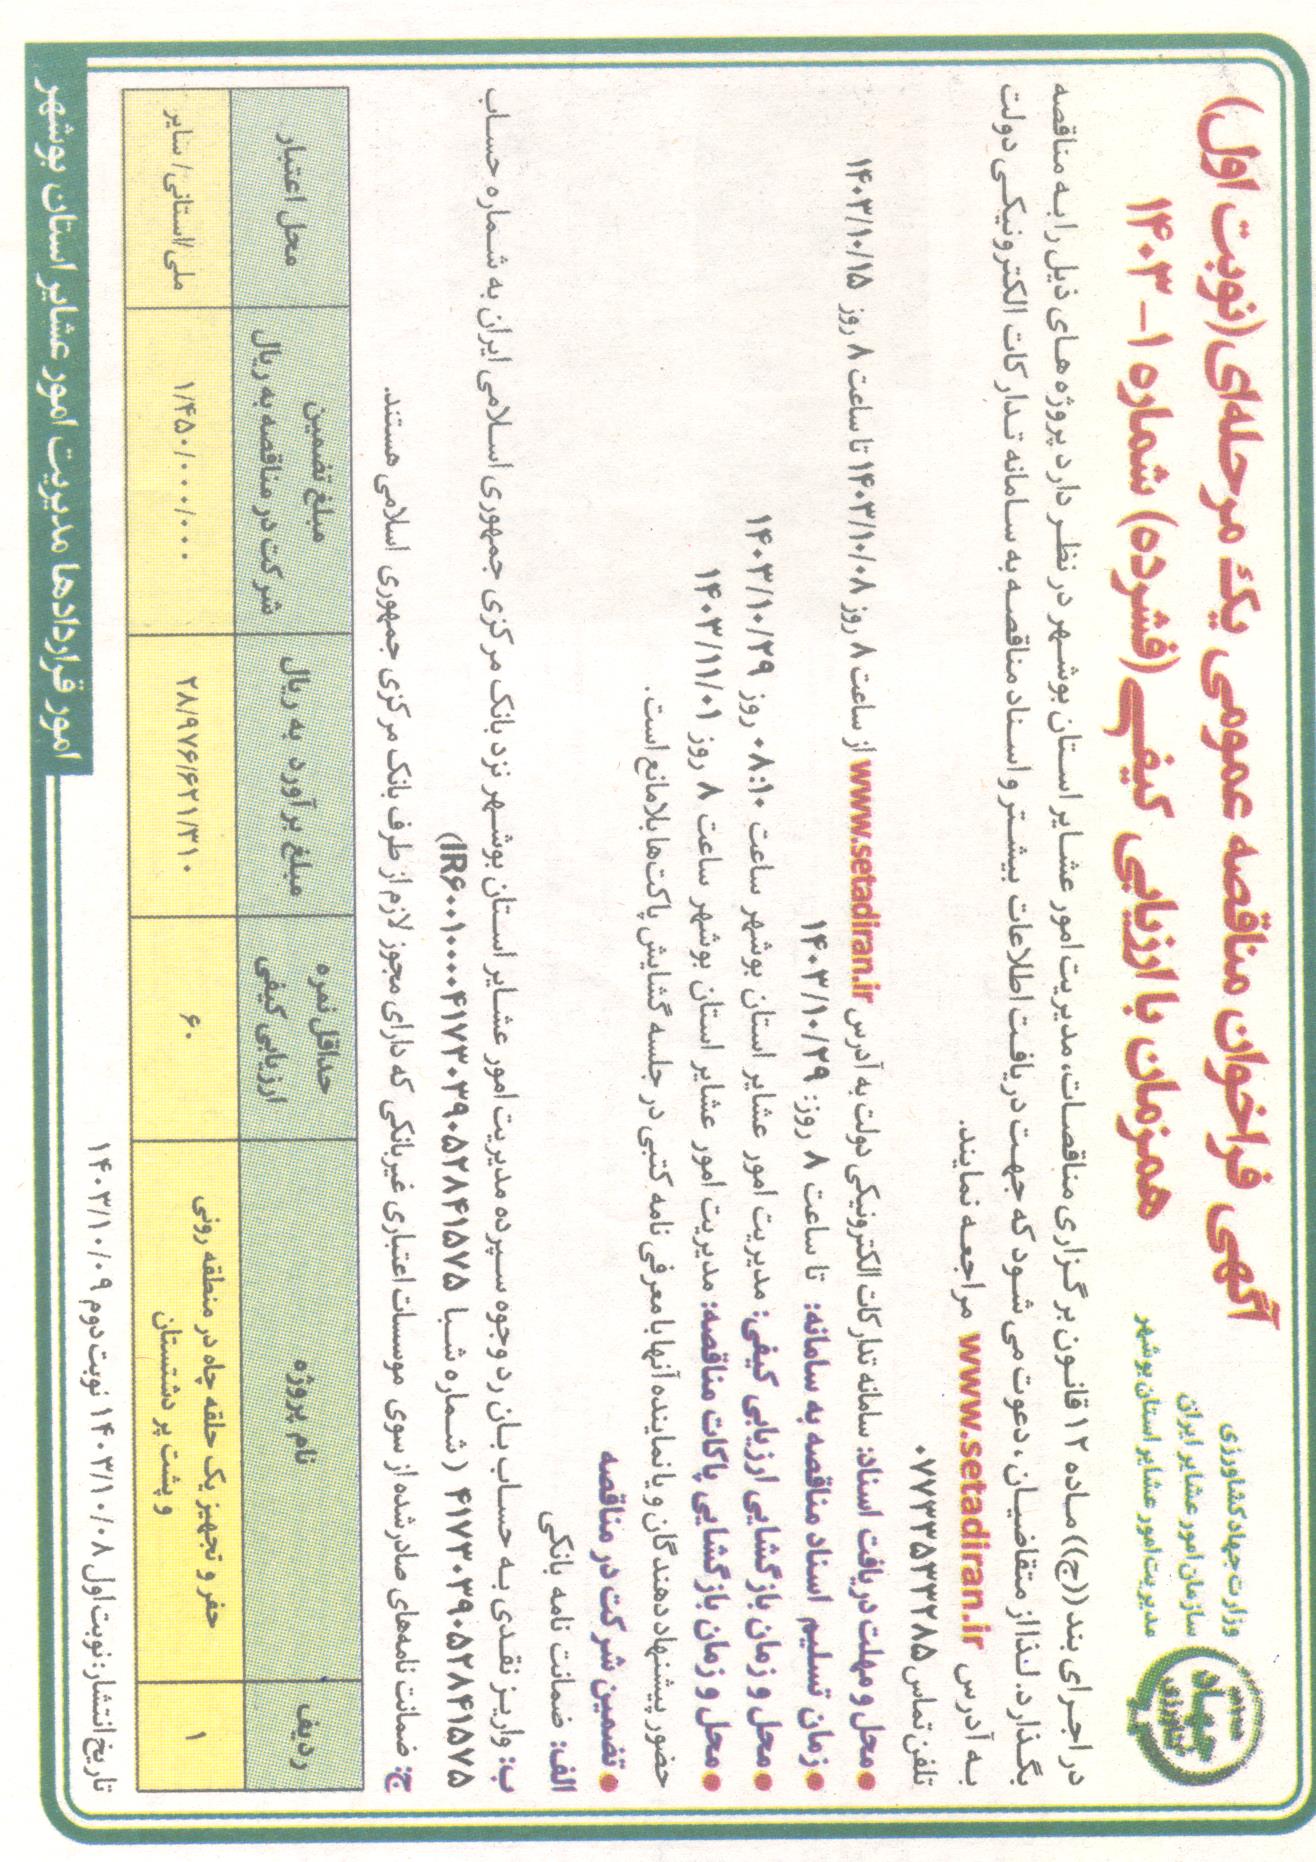 وزارت جهاد کشاورزی
سازمان امور عشایر ایران
مدیریت امور عشایر استان بوشهر
آگهی فراخوان مناقصه عمومی یک مرحله‌ای (نوبت اول)
همزمان با ارزیابی کیفی (فشرده) شماره ۱ – ۱۴۰۳
در اجرای بند ((ج)) ماده ۱۲ قانون برگزاری مناقصات، مدیریت امور عشایر استان بوشهر در نظر دارد پروژه های ذیل را به مناقصه
بگذارد. لذا از متقاضیان، دعوت می شود که جهت دریافت اطلاعات بیشتر و اسناد مناقصه به سامانه تدارکات الکترونیکی دولت
به آدرس www.setadiran.ir مراجعه نمایند.
تلفن تماس ۰۷۷۳۳۵۳۳۲۸۵
• محل و مهلت دریافت اسناد: سامانه تدارکات الکترونیکی دولت به آدرس www.setadiran.ir از ساعت ۸ روز ۱۴۰۳/۱۰/۰۸ تا ساعت ۸ روز ۱۴۰۳/۱۰/۱۵
• زمان تسلیم اسناد مناقصه به سامانه: تا ساعت ۸ روز: ۱۴۰۳/۱۰/۲۹
• محل و زمان بازگشایی ارزیابی کیفی: مدیریت امور عشایر استان بوشهر ساعت ۰۸:۱۰ روز ۱۴۰۳/۱۰/۲۹
• محل و زمان بازگشایی پاکات مناقصه: مدیریت امور عشایر استان بوشهر ساعت ۸ روز ۱۴۰۳/۱۱/۰۱
حضور پیشنهاد دهندگان و یا نماینده آنها با معرفی نامه کتبی در جلسه گشایش پاکت‌ها بلامانع است.
• تضمین شرکت در مناقصه
الف: ضمانت نامه بانکی
ب: واریز نقدی به حساب بان رد وجوه سپرده مدیریت امور عشایر استان بوشهر نزد بانک مرکزی جمهوری اسلامی ایران به شماره حساب
۴۱۷۳۰۳۹۰۵۲۸۴۱۵۷۵ (شماره شبا IR۶۰۰۱۰۰۰۰۴۱۷۳۰۳۹۰۵۲۸۴۱۵۷۵)
ج: ضمانت نامه‌های صادر شده از سوی موسسات اعتباری غیربانکی که دارای مجوز لازم از طرف بانک مرکزی جمهوری اسلامی هستند.
ردیف نام پروژه حداقل نمره ارزیابی کیفی مبلغ برآورد به ریال مبلغ تضمین شرکت در مناقصه به ریال محل اعتبار
۱ حفر و تجهیز یک حلقه چاه در منطقه رونی و پشت پر دشتستان ۶۰ ۲۸/۹۷۶/۶۲۱/۳۱۰ ۱/۴۵۰/۰۰۰/۰۰۰ ملی/استانی/ سایر
تاریخ انتشار: نوبت اول ۱۴۰۳/۱۰/۰۸ نوبت دوم ۱۴۰۳/۱۰/۰۹
امور قراردادها مدیریت امور عشایر استان بوشهر